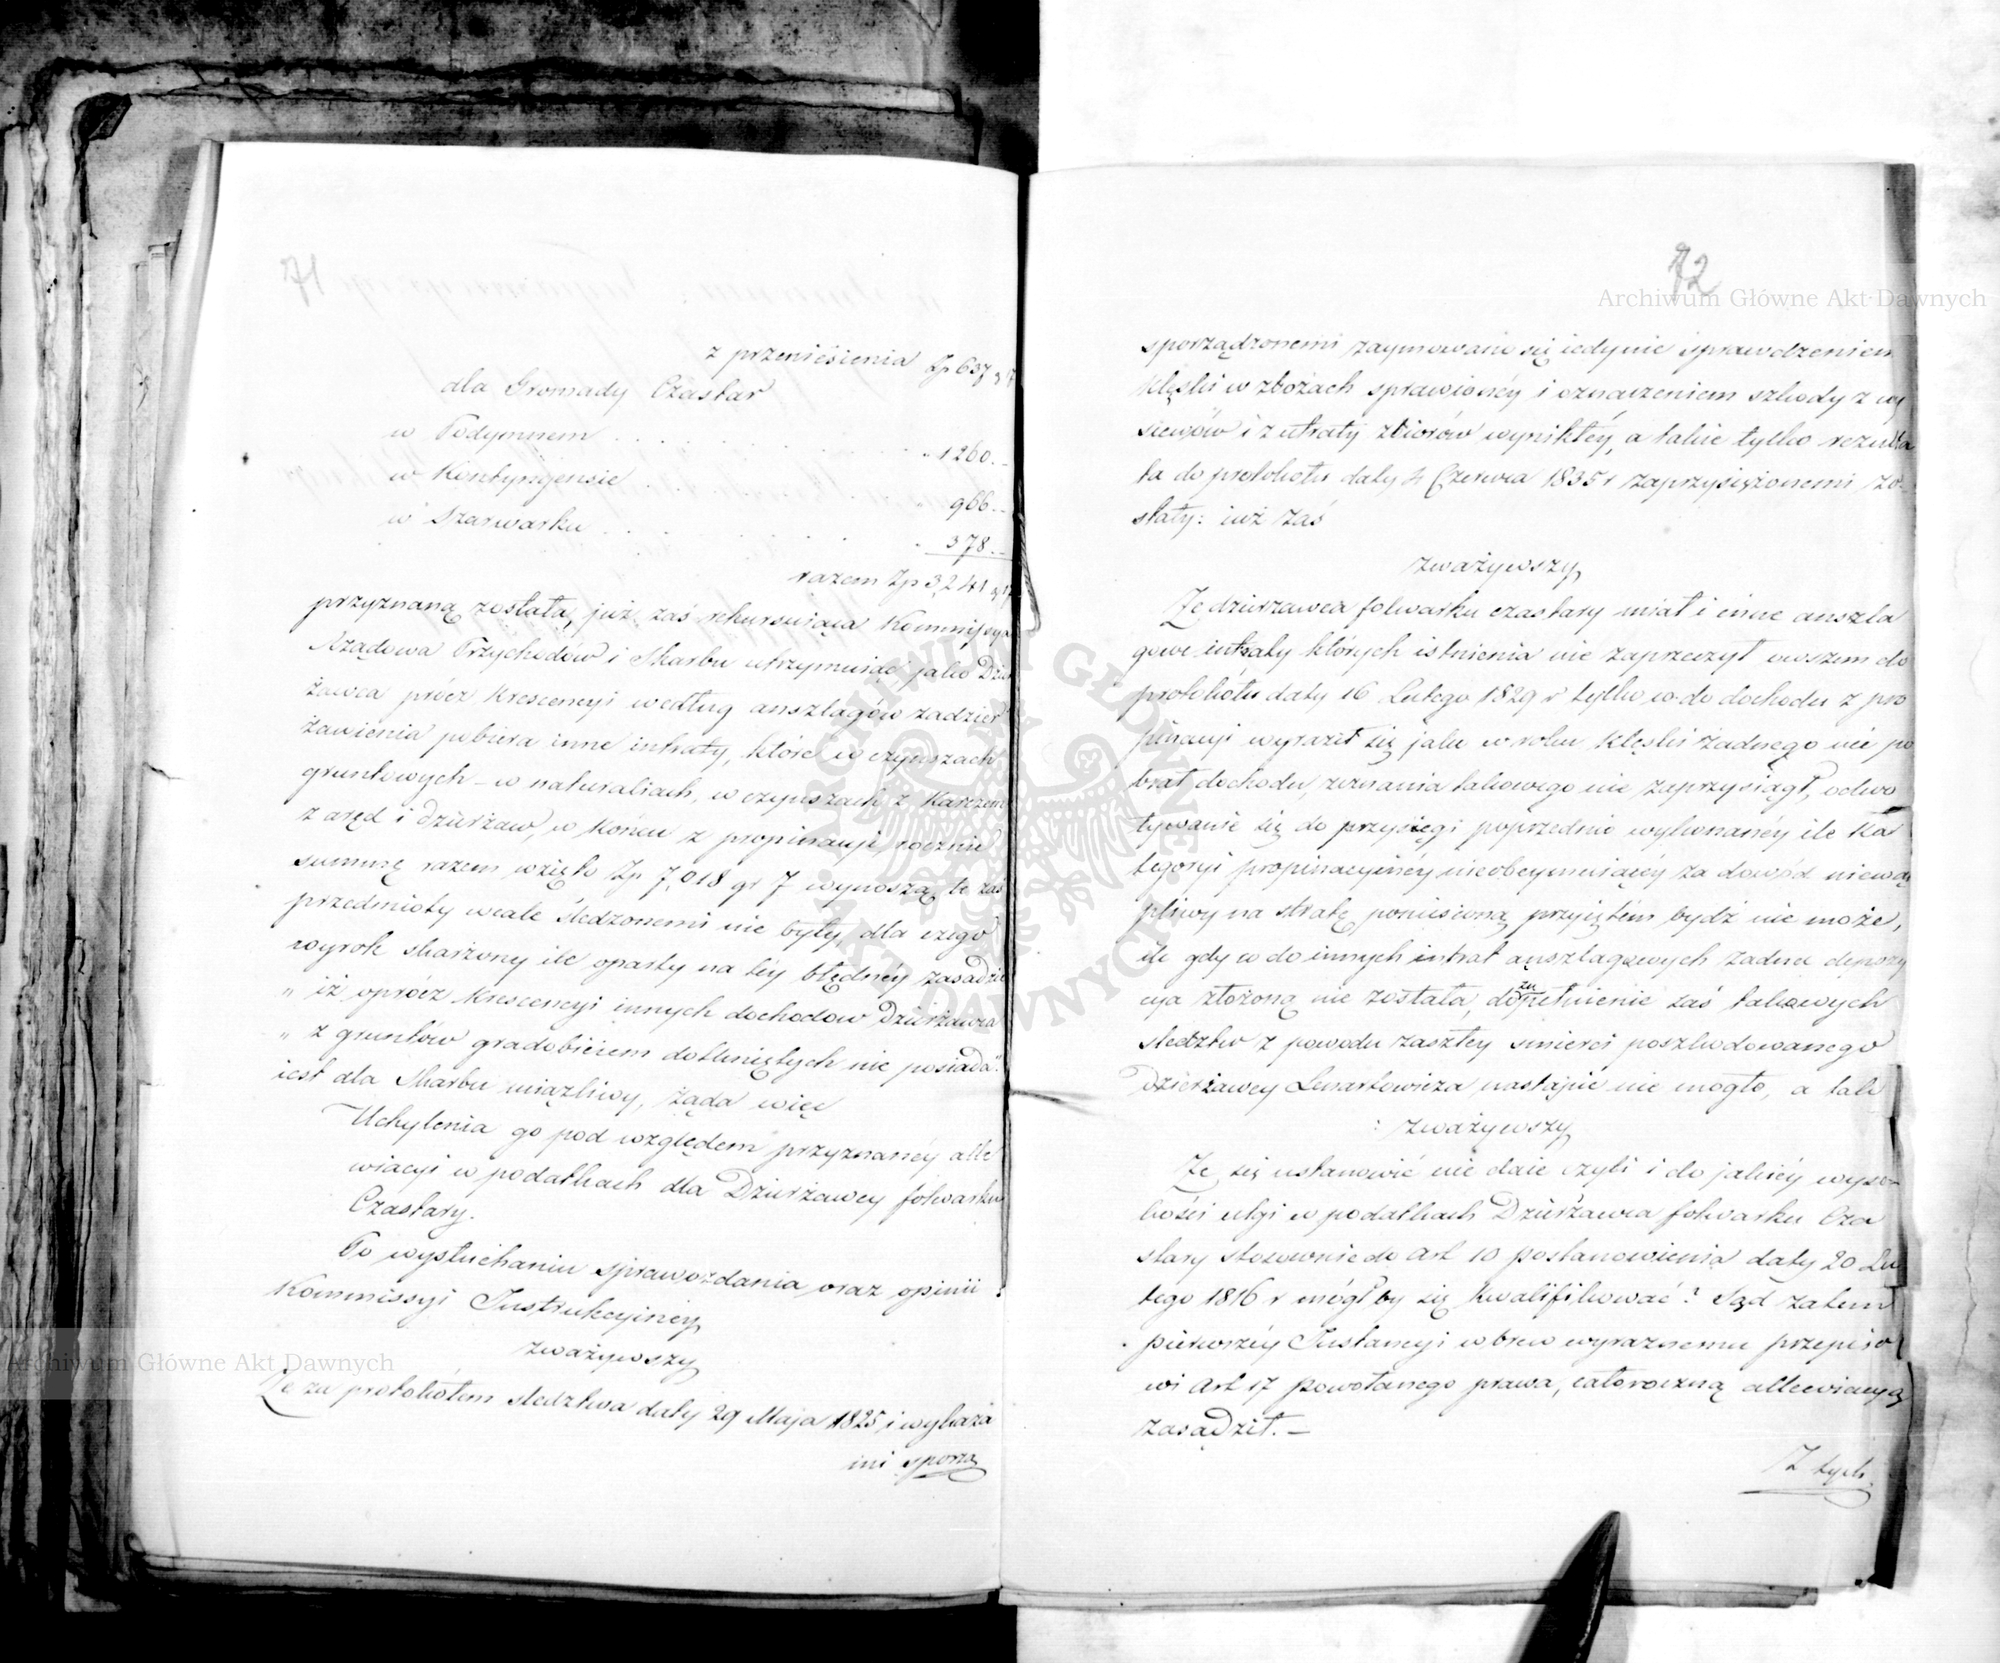 71
z przeniesienia Zp 637 g 17
dla Gromady Czastar
w Podymnem . . . " 1260. –
w Kontyngensie . . . " 966. –
w Szarwarku . . . " 378. –
razem Zp 3,241 g 17
przyznaną została, już zaś rekursuiąca Kommissya
Rządowa Przychodów i Skarbu utrzymuiąc, jako Dzier
żawca prócz Krescencyi według anszlagów zadzier
żawienia pobiera inne intraty, które w czynszach
gruntowych – w naturaliach, w czynszach z Karczem
z aręd i Dzierżaw, w końcu z propinacyi, rocznie
summę razem wzięto Zp 7,018 gr 7 wynoszą, te zaś
przedmioty wcale śledzonemi nie były, dla czego
wyrok skarżony ile oparty na téy błędnéy zasadzie
„ iż oprócz Krescencyi innych dochodow Dzierżawca
„ z gruntów gradobiciem dotkniętych nie posiada".
iest dla Skarbu uciążliwy, żąda więc
Uchylenia go pod względem przyznanéy alle
wiacyi w podatkach dla Dzierżawcy folwarku
Czastary.
Po wysłuchaniu sprawozdania oraz opinii
Kommissyi Instrukcyinéy
zważywszy
Że za protokółem śledztwa daty 29 Maja 1825 i wykaza
mi sporzą
72
Archiwum Główne Akt Dawnych
sporządzonemi zaymowano się iedynie sprawdzeniem
klęski w zbożach sprawionéy i oznaczeniem szkody z wy
siewów i z utraty zbiorów wynikłéy, a takie tylko rezulta
ta do protokołu daty 4 Czerwca 1835 r zaprzysiężonemi zo–
stały: iuż zaś
zważywszy
Że dzierżawca folwarku czastary miał i inne anszla
gowe intraty których istnienia nie zaprzeczył owszem do
protokółu daty 16 Lutego 1829 r tylko co do dochodu z pro
pinacyi wyraził się jako w roku klęski żadnego nie po
brał dochodu, zeznania takowego nie zaprzysiągł, odwo
ływanie się do przysięgi poprzednio wykonanéy ile Ka
tegoryi propinacyinéy nieobeymuiącéy za dowód niewąt
pliwy na stratę poniesioną przyiętém bydź nie może,
ile gdy co do innych intrat anszlagowych żadna depozy
cya złożoną nie została, dozupełnienie zaś takowych
śledztw z powodu zaszłey śmierci poszkodowanego
Dzierżawcy Lenartowicza nastąpić nie mogło, a tak
: zważywszy
Że się ustanowić nie daie czyli i do jakiéy wyso–
kości ulgi w podatkach Dzierżawca folwarku Cza
stary stosownie do Art 10 postanowienia daty 20 Lu
tego 1816 r mógłby się kwalifikować? Sąd zatem
pierwszéy Instancyi wbrew wyraźnemu przepiso
wi Art 17 powołanego prawa, całoroczną allewiacyą
zasądził. –
Z tych
Archiwum Główne Akt Dawnych
ARCHIWUM GŁÓWNE AKT DAWNYCH